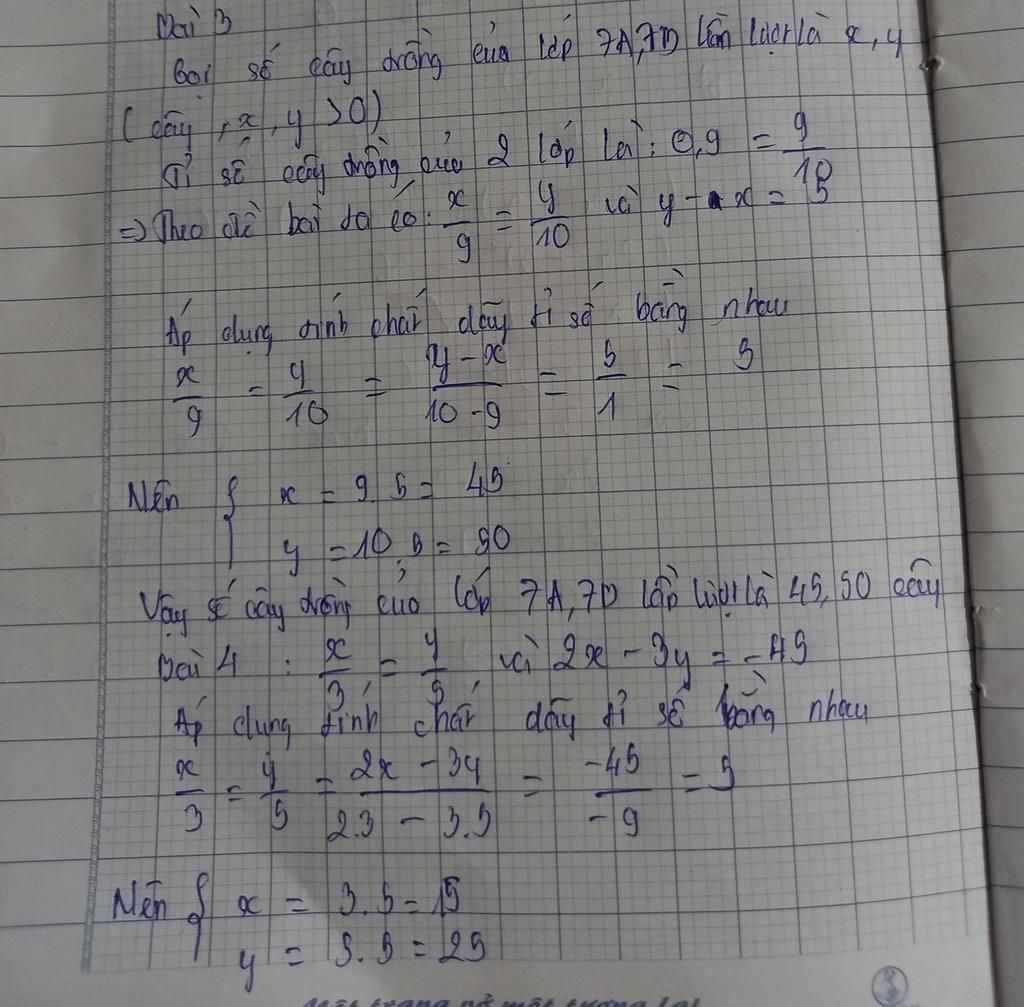 Bài 3
Gọi số cây trồng của lớp 7A, 7D lần lượt là x, y
(cây, x, y > 0)
Tỉ số cây trồng của 2 lớp là: 0,9 = 9/10
=> Theo đề bài ta có: x/9 = y/10 và y - x = 5
Áp dụng tính chất dãy tỉ số bằng nhau
x/9 = y/10 = (y - x)/(10 - 9) = 5/1 = 5
Nên { x = 9.5 = 45
y = 10.5 = 50
Vậy số cây trồng của lớp 7A, 7D lần lượt là 45, 50 cây
Bài 4 : x/3 = y/5 và 2x - 3y = -45
Áp dụng tính chất dãy tỉ số bằng nhau
x/3 = y/5 = (2x - 3y)/(2.3 - 3.5) = -45/-9 = 5
Nên { x = 3.5 = 15
y = 5.5 = 25